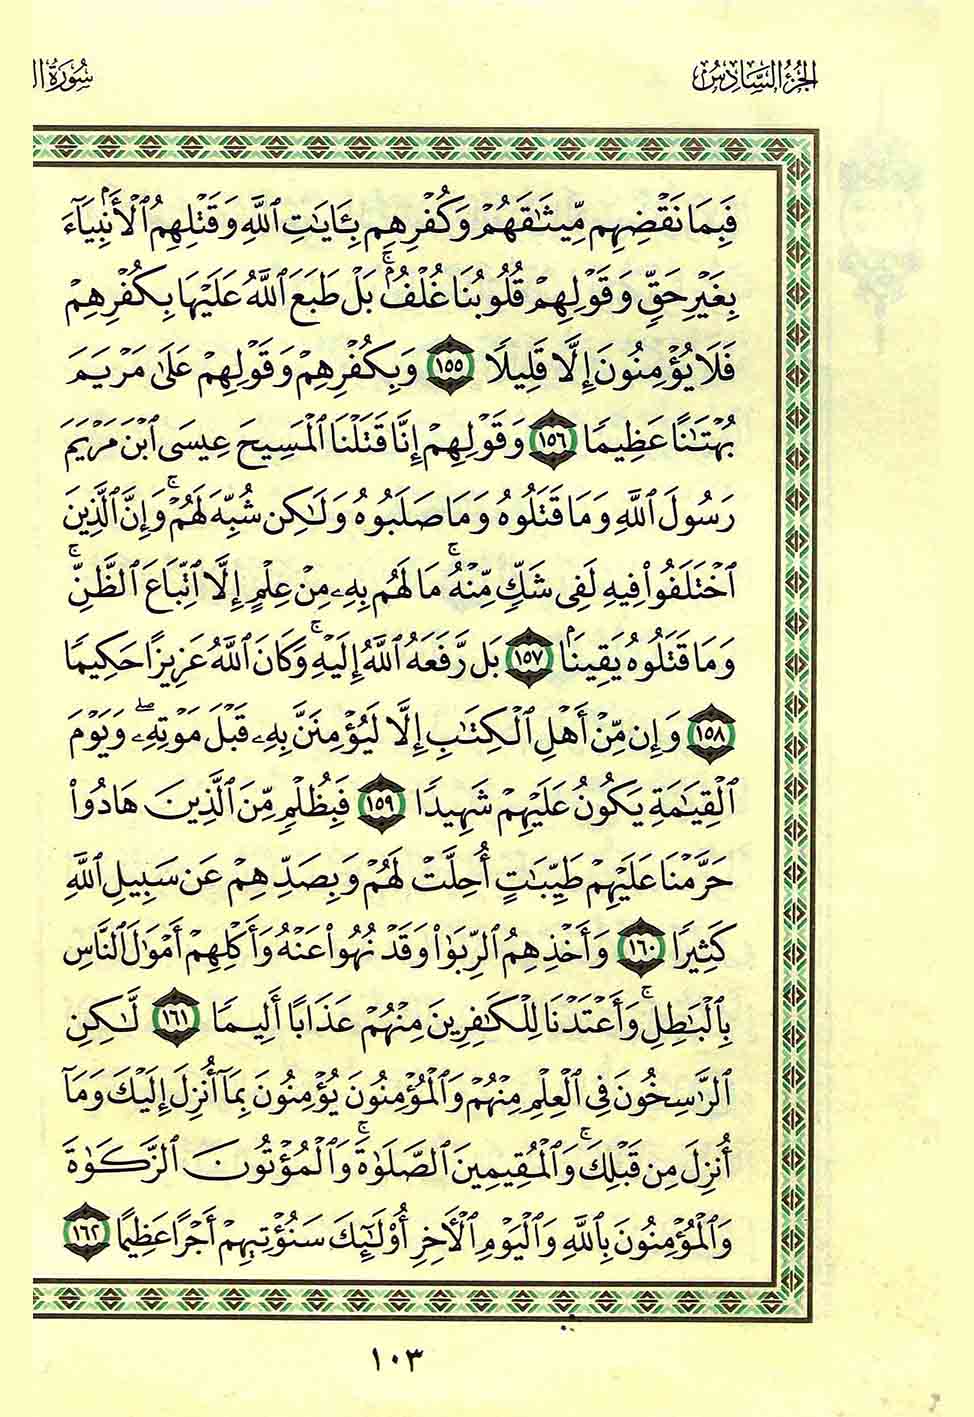 الجزء السادس
سورة ال
فَبِمَا نَقْضِهِم مِّيثَٰقَهُمْ وَكُفْرِهِم بِـَٔايَٰتِ ٱللَّهِ وَقَتْلِهِمُ ٱلْأَنۢبِيَآءَ
بِغَيْرِ حَقٍّ وَقَوْلِهِمْ قُلُوبُنَا غُلْفٌۢ ۚ بَلْ طَبَعَ ٱللَّهُ عَلَيْهَا بِكُفْرِهِمْ
فَلَا يُؤْمِنُونَ إِلَّا قَلِيلًا ١٥٥ وَبِكُفْرِهِمْ وَقَوْلِهِمْ عَلَىٰ مَرْيَمَ
بُهْتَٰنًا عَظِيمًا ١٥٦ وَقَوْلِهِمْ إِنَّا قَتَلْنَا ٱلْمَسِيحَ عِيسَى ٱبْنَ مَرْيَمَ
رَسُولَ ٱللَّهِ وَمَا قَتَلُوهُ وَمَا صَلَبُوهُ وَلَٰكِن شُبِّهَ لَهُمْ ۚ وَإِنَّ ٱلَّذِينَ
ٱخْتَلَفُوا۟ فِيهِ لَفِى شَكٍّ مِّنْهُ ۚ مَا لَهُم بِهِۦ مِنْ عِلْمٍ إِلَّا ٱتِّبَاعَ ٱلظَّنِّ ۚ
وَمَا قَتَلُوهُ يَقِينًۢا ١٥٧ بَل رَّفَعَهُ ٱللَّهُ إِلَيْهِ ۚ وَكَانَ ٱللَّهُ عَزِيزًا حَكِيمًا
١٥٨ وَإِن مِّنْ أَهْلِ ٱلْكِتَٰبِ إِلَّا لَيُؤْمِنَنَّ بِهِۦ قَبْلَ مَوْتِهِۦ ۖ وَيَوْمَ
ٱلْقِيَٰمَةِ يَكُونُ عَلَيْهِمْ شَهِيدًا ١٥٩ فَبِظُلْمٍ مِّنَ ٱلَّذِينَ هَادُوا۟
حَرَّمْنَا عَلَيْهِمْ طَيِّبَٰتٍ أُحِلَّتْ لَهُمْ وَبِصَدِّهِمْ عَن سَبِيلِ ٱللَّهِ
كَثِيرًا ١٦٠ وَأَخْذِهِمُ ٱلرِّبَوٰا۟ وَقَدْ نُهُوا۟ عَنْهُ وَأَكْلِهِمْ أَمْوَٰلَ ٱلنَّاسِ
بِٱلْبَٰطِلِ ۚ وَأَعْتَدْنَا لِلْكَٰفِرِينَ مِنْهُمْ عَذَابًا أَلِيمًا ١٦١ لَّٰكِنِ
ٱلرَّٰسِخُونَ فِى ٱلْعِلْمِ مِنْهُمْ وَٱلْمُؤْمِنُونَ يُؤْمِنُونَ بِمَآ أُنزِلَ إِلَيْكَ وَمَآ
أُنزِلَ مِن قَبْلِكَ ۚ وَٱلْمُقِيمِينَ ٱلصَّلَوٰةَ ۚ وَٱلْمُؤْتُونَ ٱلزَّكَوٰةَ
وَٱلْمُؤْمِنُونَ بِٱللَّهِ وَٱلْيَوْمِ ٱلْأَخِرِ أُو۟لَٰٓئِكَ سَنُؤْتِيهِمْ أَجْرًا عَظِيمًا ١٦٢
١٠٣